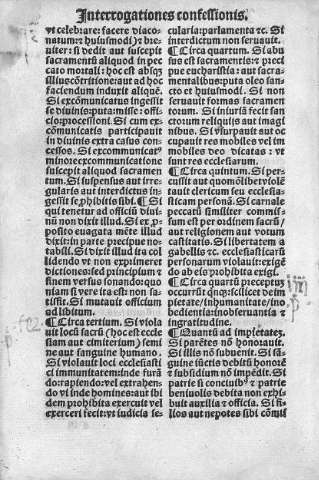 Interrogationes confessionis.
vt celebrare: facere diaco-
natum: ⁊ huiusmodi) ⁊ bre-
uiter: si dedit aut suscepit
sacramentū aliquod in pec-
cato mortali: hoc est absq̃
illius cōtritione: aut ad hoc
faciendum induxit aliquē.
Si excōmunicatus ingessit
se diuinis: puta: misse: offi-
cio: processioni. Si cum ex-
cōmunicatis participauit
in diuinis extra casus con-
cessos. Si excommunicatꝰ
minore excommunicatione
suscepit aliquid sacramen
tum. Si suspensus aut irre-
gularis aut interdictus in-
gessit se ꝓhibitis sibi. ¶ Si
qui tenetur ad officiū diui-
nū non dixit illud. Si ex p̄-
posito euagata mēte illud
dixit: in parte precipue no-
tabili. Si dixit illud ita col
lidendo vt non exprimeret
dictiones: sed principium ⁊
finem versus sonando: quo
niam si vere ita est non sa-
tisfit. Si mutauit officium
ad libitum.
¶ Circa tertium. Si viola
uit locū sacrū (hoc est eccle
siam aut cimiterium) semi
ne aut sanguine humano.
Si violauit loci ecclesiasti
ci immunitatem: inde furā
do: rapiendo: vel extrahen-
do vi inde homines: aut ibi
dem prohibita exercuit vel
exerceri fecit: vt iudicia se-
cularia: parlamenta ⁊c. Si
interdictum non seruauit.
¶ Circa quartum. Si abu
sus est sacramentis: ⁊ preci
pue eucharistia: aut sacra-
mentalibus: puta oleo san-
cto et huiusmodi. Si non
seruauit formas sacramen
torum. Si iniuriā fecit san
ctorum reliquiis aut imagi
nibus. Si vsurpauit aut oc
cupauit res mobiles vel im
mobiles deo dicatas: vt
sunt res ecclesiarum.
¶ Circa quintum. Si per-
cussit aut quomōlibet viole
tauit clericum seu ecclesia-
sticam personā. Si carnale
peccatū similiter commis-
sum est per ordinem sacrū/
aut religionem aut votum
castitatis. Si libertatem a
gabellis ⁊c. ecclesiasticarū
personarum violauit: exigē
do ab eis prohibita exigi.
¶ Circa quartū preceptū
occurrūt q̄nq̃: scilicet de im
pietate/inhumanitate/ino
bedientia: inobseruantia ⁊
ingratitudine.
¶ Quantū ad impietatez.
Si parētes nō honorauit.
Si illis nō subuenit. Si sā-
guine iūctis debitū honorē
⁊ subsidium nō impēdit. Si
patrie si conciuibꝰ ⁊ patrie
beniuolis debita non exhi
buit auxilia ⁊ officia. Si fi-
lios aut nepotes sibi cōmis